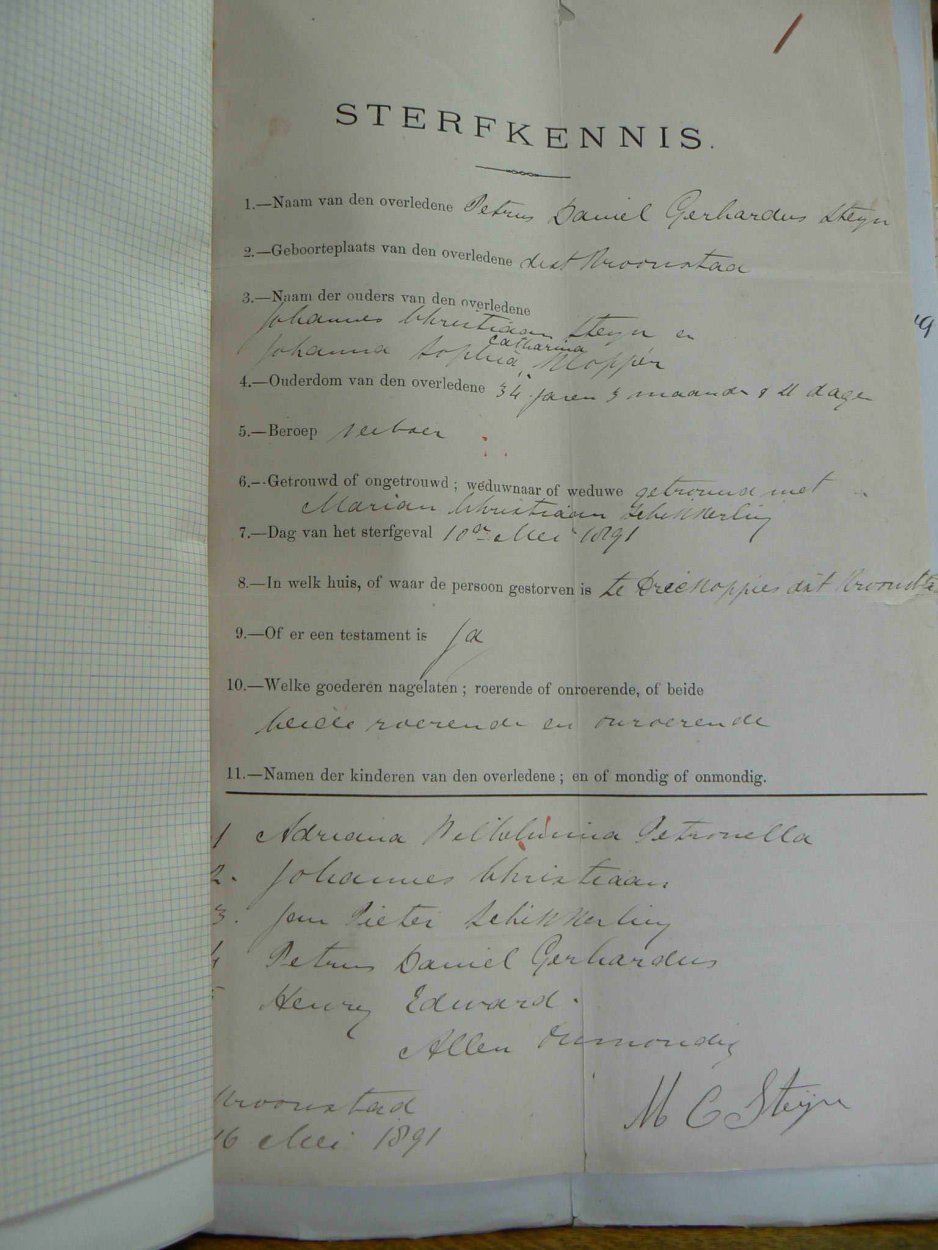 STERFKENNIS.
1.—Naam van den overledene Petrus Daniel Gerhardus Steyn
2.—Geboorteplaats van den overledene dist Kroonstad
3.—Naam der ouders van den overledene
Johannes Christiaan Steyn en
catharina
Johanna Sophia Klopper
4.—Ouderdom van den overledene 34 jaren 3 maanden & 21 dage
5.—Beroep veeboer
6.—Getrouwd of ongetrouwd; weduwnaar of weduwe getrouwd met
Maria Christiaan Schikkerling
7.—Dag van het sterfgeval 10de Mei 1891
8.—In welk huis, of waar de persoon gestorven is te Driekoppies dist Kroonsta
9.—Of er een testament is Ja
10.—Welke goederen nagelaten; roerende of onroerende, of beide
beide roerende en onroerende
11.—Namen der kinderen van den overledene; en of mondig of onmondig.
1 Adriana Wilhelmina Petronella
2. Johannes Christiaan
3. Jan Pieter Schikkerling
4 Petrus Daniel Gerhardus
5 Henry Edward.
Allen Onmondig
Kroonstad
M C Steyn
16 Mei 1891